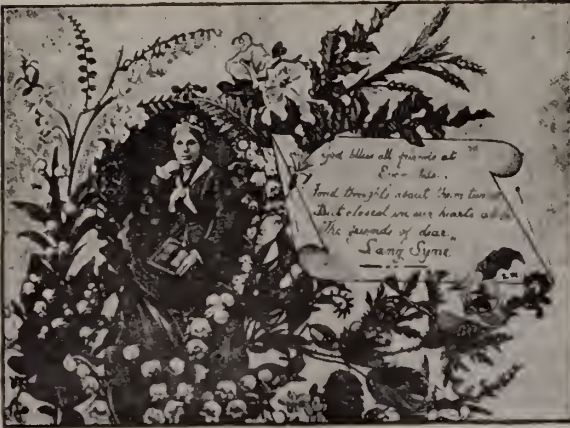 God bless all friends at
Fond thoughts about them
But closed in our hearts
The friends of dear
Lang Syne